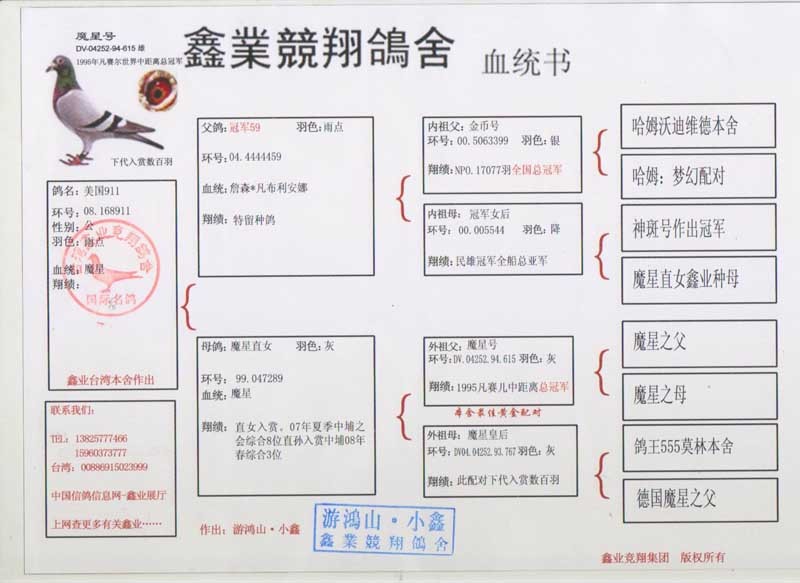 魔星号
DV-04252-94-615 雄
1995年凡赛尔世界中距离总冠军
鑫業競翔鴿舍
血统书
下代入赏数百羽
鸽名：美国911
环号：08.168911
性别：公
羽色：雨点
血统：魔星
翔绩：
国际名鸽
鑫业台湾本舍作出
联系我们：
TEL：13825777466
15960373777
台湾：00886915023999
中国信鸽信息网-鑫业展厅
上网查更多有关鑫业……
父鸽：冠军59 羽色：雨点
环号：04.4444459
血统：詹森*凡布利安娜
翔绩：特留种鸽
母鸽：魔星直女 羽色：灰
环号：99.047289
血统：魔星
翔绩：直女入赏。07年夏季中埔之
会综合8位直孙入赏中埔08年
春综合3位
作出：游鸿山·小鑫
游鴻山·小鑫
鑫業競翔鴿舍
内祖父：金币号
环号：00.5063399 羽色：银
翔绩：NPO.17077羽全国总冠军
内祖母：冠军女后
环号：00.005544 羽色：降
翔绩：民雄冠军全船总亚军
外祖父：魔星号
环号：DV.04252.94.615 羽色：灰
翔绩：1995凡赛儿中距离总冠军
本舍最佳黄金配对
外祖母：魔星皇后
环号：DV04.04252.93.767 羽色：灰
翔绩：此配对下代入赏数百羽
哈姆沃迪维德本舍
哈姆：梦幻配对
神斑号作出冠军
魔星直女鑫业种母
魔星之父
魔星之母
鸽王555莫林本舍
德国魔星之父
鑫业竞翔集团 版权所有